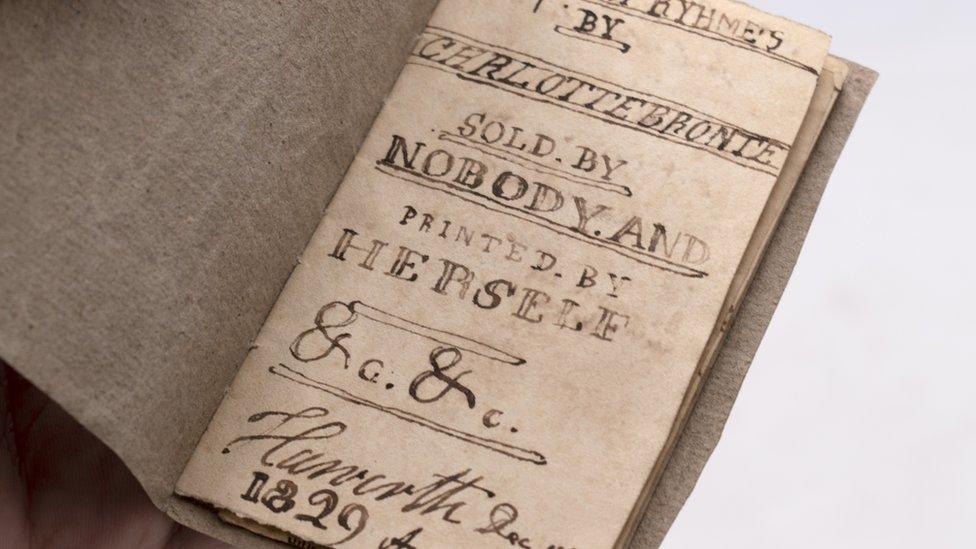 RYHMES
BY
CHRLOTTEBRONTE
SOLD.BY
NOBODY.AND
PRINTED.BY
HERSELF
&C. &C.
Haworth Dec
1829